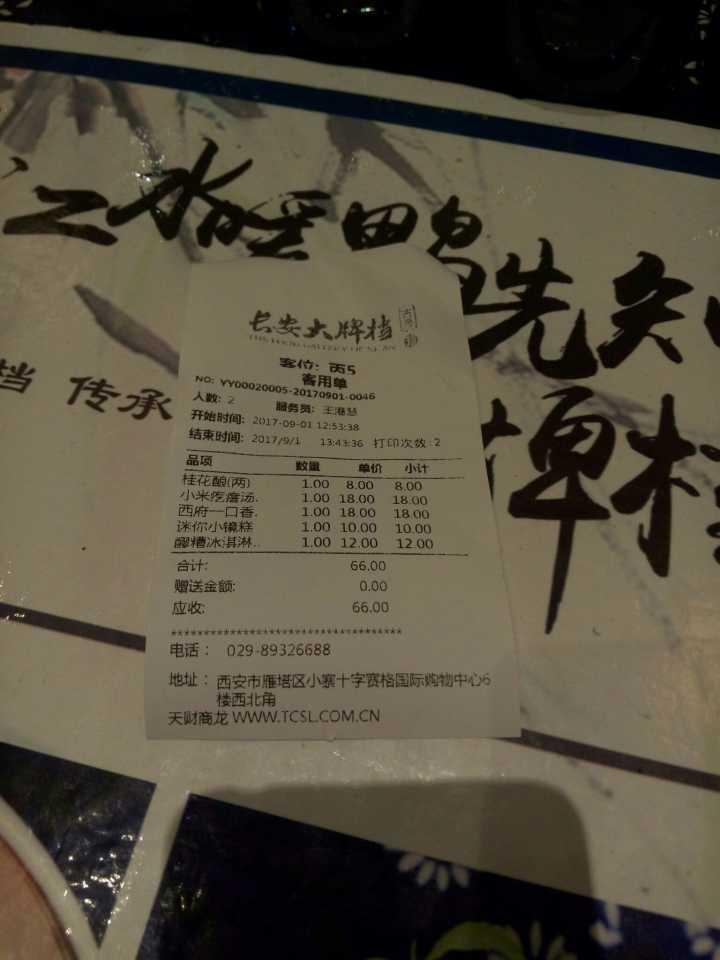 江水暖鸭先知
档 传承
牌档
长安大牌档
THE FOOD GALLERY OF XI'AN
客位: 丙5
客用单
NO: YY00020005-20170901-0046
人数: 2 服务员: 王港慧
开始时间: 2017-09-01 12:53:38
结束时间: 2017/9/1 13:43:36 打印次数: 2
品项 数量 单价 小计
桂花酿(两) 1.00 8.00 8.00
小米疙瘩汤. 1.00 18.00 18.00
西府一口香. 1.00 18.00 18.00
迷你小镜糕 1.00 10.00 10.00
醪糟冰淇淋.. 1.00 12.00 12.00
合计: 66.00
赠送金额: 0.00
应收: 66.00
************************************
电话: 029-89326688
地址: 西安市雁塔区小寨十字赛格国际购物中心6
楼西北角
天财商龙 WWW.TCSL.COM.CN